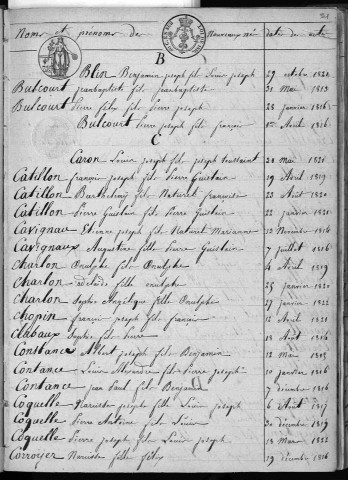 Noms et prénoms des Nouveaux nés date des actes
B
Blin Benjamin joseph fils Louis joseph 29 octobre 1820
Bulcourt jeanbaptiste fils jeanbaptiste 31 Mai 1813
Bulcourt Pierre fils Pierre joseph 28 janvier 1816
Bulcourt Pierre joseph fils françois 1er Août 1816
C
Caron Louis joseph fils joseph toussaint 20 Mai 1821
Catillon françois joseph fils Pierre Guislain 19 Avril 1819
Catillon Barthelemy fils Naturel françoise 23 Août 1820
Catillon Pierre Guislain fils Pierre Guislain 22 janvier 1821
Cavignau Etienne joseph fils Naturel Marianne 23 Novembre 1816
Cavignaux Augustine fille Pierre Guislain 7 juillet 1816
Charlon Onulphe fils Onulphe Avril 1819
Charlon adelaïde fille onulphe 25 janvier 1820
Charlon Sophie Angelique fille Onulphe 27 janvier 1822
Chopin françois joseph fils françois 12 Avril 1821
Clabaux Sophie fils Pierre 18 Août 1816
Constance Albert joseph fils Benjamin 12 Mai 1815
Contance Louis Alexandre fils Pierre joseph 10 janvier 1816
Contance jean Paul fils Benjamin 7 décembre 1816
Coquelle Narcisse joseph fille Louis joseph 6 Août 1817
Coquelle Pierre Antoine fils Louis 30 décembre 1819
Coquelle Pierre joseph fils Louis joseph 18 Mars 1822
Corroyer Narcisse fille félix 19 décembre 1816